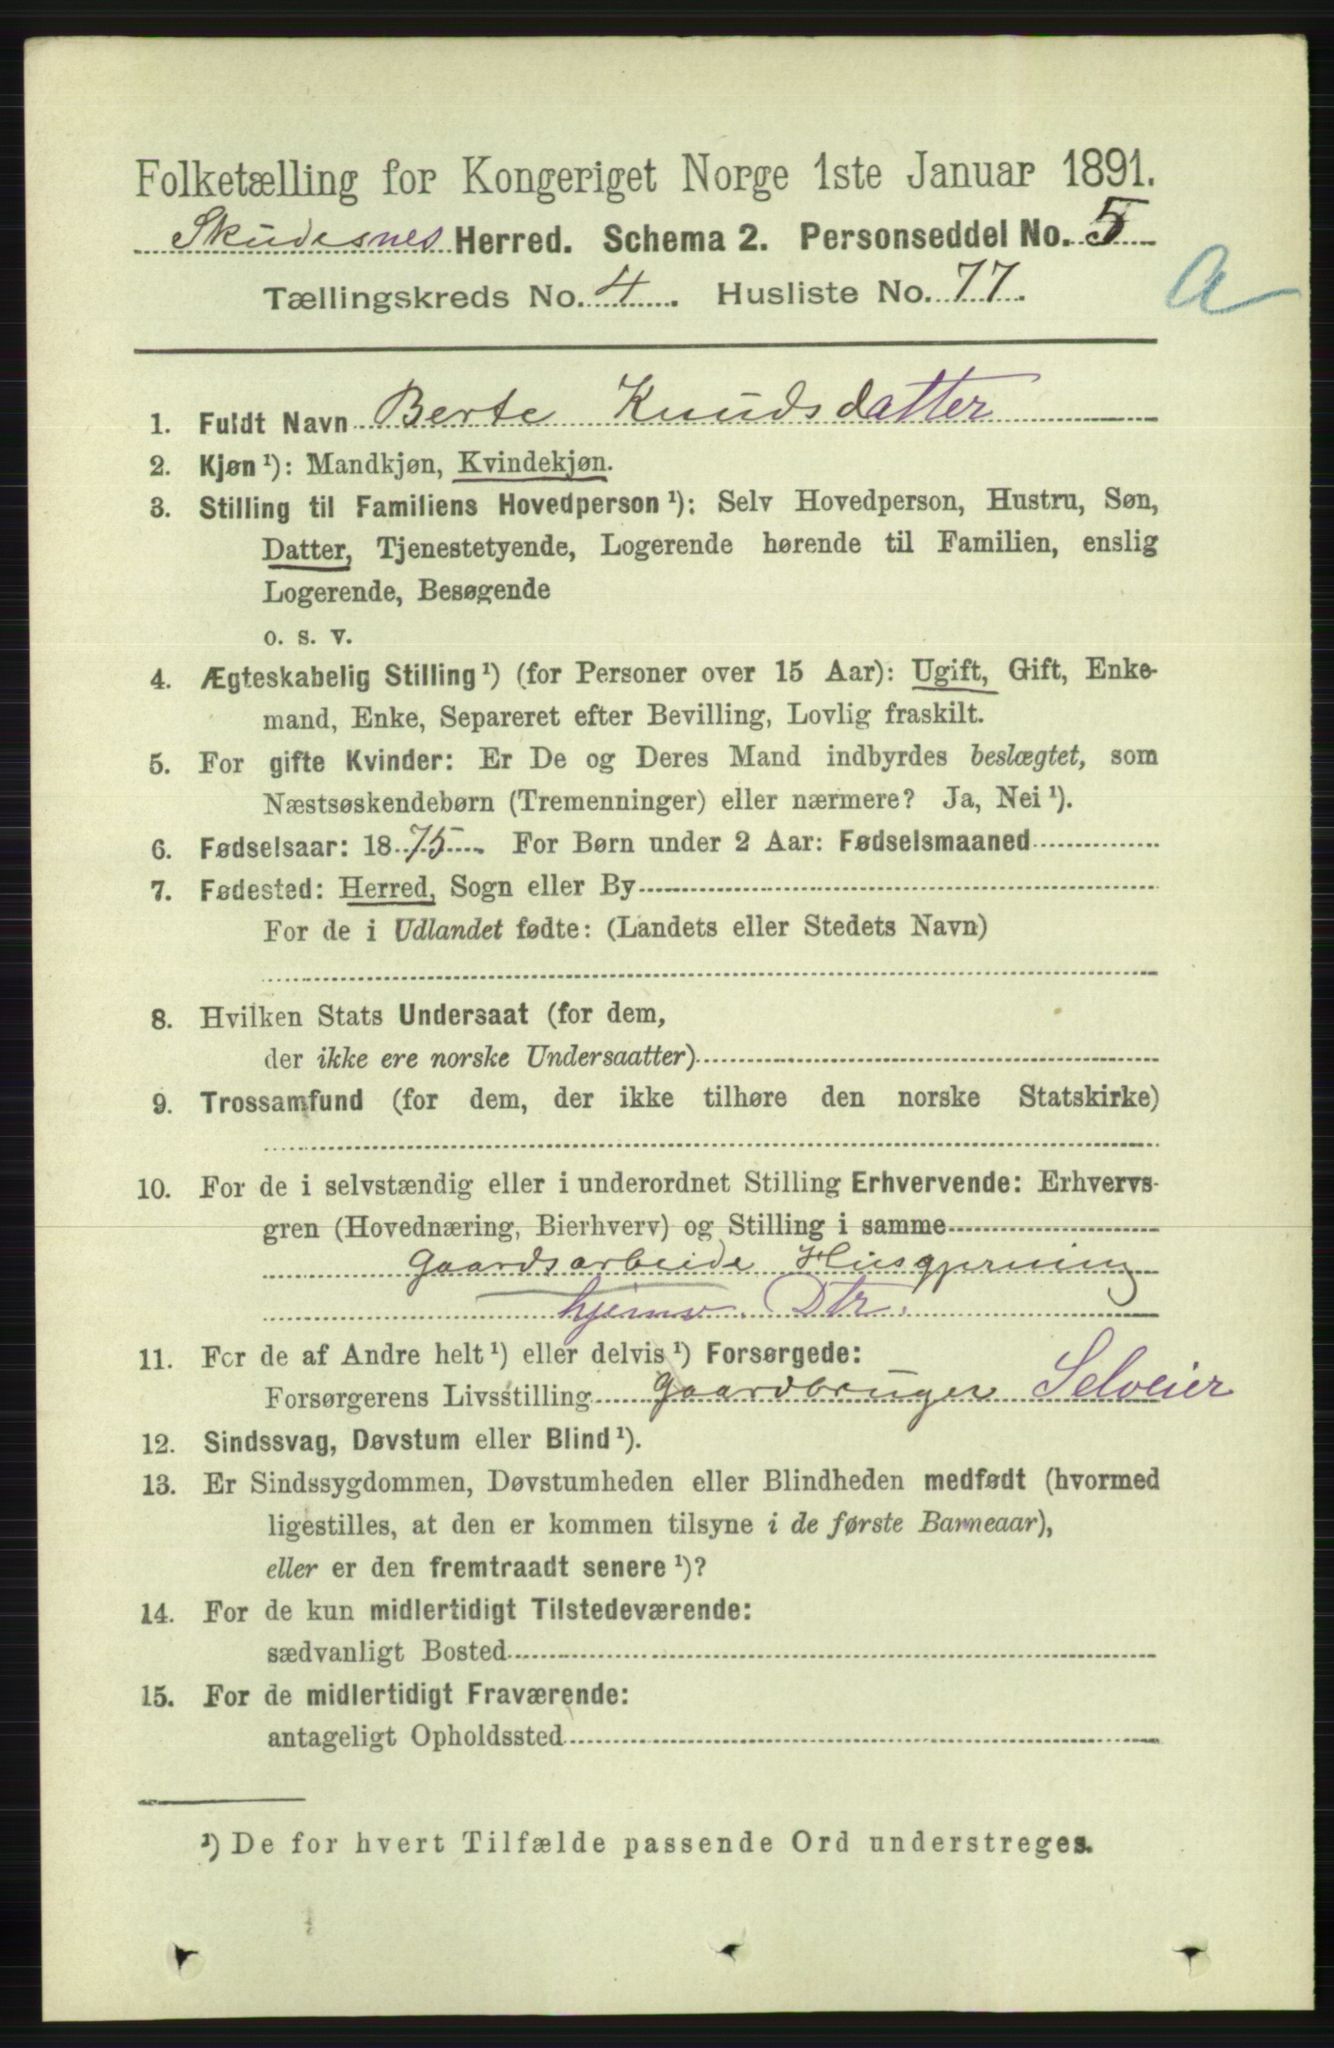 Folketælling for Kongeriget Norge 1ste Januar 1891.
Skudesnes Herred. Schema 2. Personseddel No. 5
a
Tællingskreds No. 4. Husliste No. 77.
1. Fuldt Navn Berte Knudsdatter
2. Kjøn ¹): Mandkjøn, Kvindekjøn.
3. Stilling til Familiens Hovedperson ¹): Selv Hovedperson, Hustru, Søn,
Datter, Tjenestetyende, Logerende hørende til Familien, enslig
Logerende, Besøgende
o. s. v.
4. Ægteskabelig Stilling ¹) (for Personer over 15 Aar): Ugift, Gift, Enke-
mand, Enke, Separeret efter Bevilling, Lovlig fraskilt.
5. For gifte Kvinder: Er De og Deres Mand indbyrdes beslægtet, som
Næstsøskendebørn (Tremenninger) eller nærmere? Ja, Nei ¹).
6. Fødselsaar: 1875. For Børn under 2 Aar: Fødselsmaaned
7. Fødested: Herred, Sogn eller By
For de i Udlandet fødte: (Landets eller Stedets Navn)
8. Hvilken Stats Undersaat (for dem,
der ikke ere norske Undersaatter)
9. Trossamfund (for dem, der ikke tilhøre den norske Statskirke)
10. For de i selvstændig eller i underordnet Stilling Erhvervende: Erhvervs-
gren (Hovednæring, Bierhverv) og Stilling i samme
Gaardsarbeide Husgjerning
hjemv. Dtr.
11. For de af Andre helt ¹) eller delvis ¹) Forsørgede:
Forsørgerens Livsstilling Gaardbruger Selveier
12. Sindssvag, Døvstum eller Blind ¹).
13. Er Sindssygdommen, Døvstumheden eller Blindheden medfødt (hvormed
ligestilles, at den er kommen tilsyne i de første Barneaar),
eller er den fremtraadt senere ¹)?
14. For de kun midlertidigt Tilstedeværende:
sædvanligt Bosted
15. For de midlertidigt Fraværende:
antageligt Opholdssted
¹) De for hvert Tilfælde passende Ord understreges.